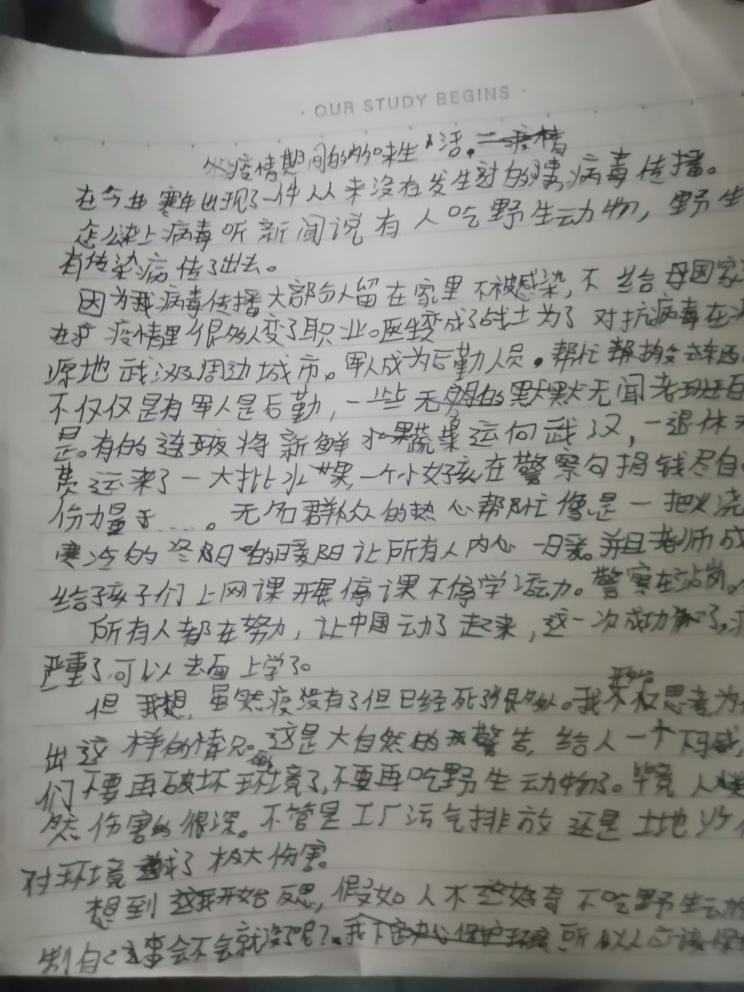 OUR STUDY BEGINS
疫情期间的 生活。
在今年寒 出现了一件从来没有发生过的 病毒传播。
怎么染上病毒听新闻说有人吃野生动物，野生
有传染病传了出去。
因为 病毒传播大部分人留在家里不被感染，不给母国家
在 疫情里很多人变了职业。医生变成了战士为了对抗病毒在
源地武汉及周边城市。军人成为后勤人员。帮忙
不仅仅是有军人是后勤，一些无 的默默无闻老班百
是。有的连夜将新鲜水果蔬菜运向武汉，一退休
费运来了一大批水果，一个小女孩在警察局捐钱尽自
份力量于……。无名群众的热心帮忙像是一把火浇
寒冷的冬阳 的暖阳让所有人内心一暖。并且老师成
给了孩子们上网课开展停课不停学活力。警察在站岗。
所有人都在努力，让中国动了起来，这一次成功 了，
严重了，可以去 上学了。
但我想，虽然疫没有了但已经死了很多人。我开始 思考为
出这样的情况。这是大自然的 警告，给人一个下马威，
们不要再破坏环境了，不要再吃野生动物了。毕竟人类
然伤害的很深。不管是工厂污气排放还是土地
对环境 了极大伤害。
想到这我开始反思，假如人不 好奇不吃野生动
制自己这事会不会就没了呢？ 所以人应该保